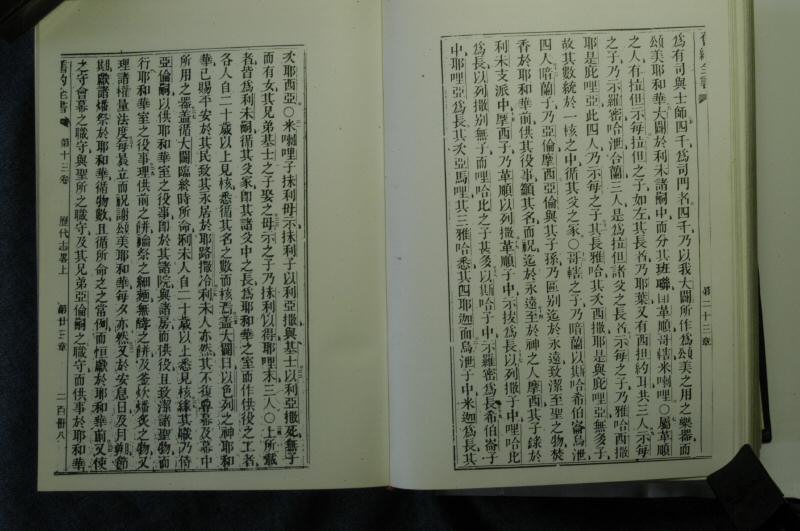 爲有司與士師四千爲司門者四千乃以我大闢所作爲頌美之用之樂器而
頌美耶和華大闢於利未諸嗣中而分其班聯曰革順哥轄米喇哩○屬革順
之人有拉但示每拉但之子如左其長者乃耶葉又有西担約耳共三人示每
之子乃示羅密哈泄合蘭三人是爲拉但諸父之長者示每之子乃雅哈西撒
耶是庇哩亞此四人乃示每之子其長雅哈其次西撒耶是與庇哩亞無多子
故其數統於一核之中循其父之家○哥轄之子乃暗蘭以斯哈希伯崙烏泄
四人暗蘭子乃亞倫摩西亞倫與其子孫乃區別迄於永遠致潔至聖之物焚
香於耶和華前供其役事籲其名而祝迄於永遠至於神之人摩西其子錄於
利未支派中摩西子乃革順以列撒革順子中示拔爲長以列撒子中哩哈比
爲長以列撒別無子而哩哈比之子甚多以斯哈子中示羅密爲長希伯崙子
中耶哩亞爲長其次亞馬哩其三雅哈悉其四耶迦而烏泄子中米迦爲長其
第二十三章
次耶西亞○米喇哩子抹利母示抹利子以利亞撒與基士以利亞撒死無子
而有女其兄弟基士之子娶之母示之子乃抹利以得耶哩末三人○上所載
者皆爲利未嗣循其父家即其諸父中之長爲耶和華之室而作供役之工者
各人自二十歲以上見核悉循其名之數而核焉蓋大闢曰以色列之神耶和
華已賜平安於其民致其永居於耶路撒冷利未人亦然其不復舁幕及幕中
所用之器蓋循大闢臨終時所命利未人自二十歲以上悉見核緣其職乃侍
亞倫嗣以供耶和華室之役事即於其諸院與諸房而供役且致潔諸聖物而
行耶和華室之役事理供前之餅禴祭之細麵無酵之餅及釜炊燔炙之物又
理諸權量法度每晨立而祝謝頌美耶和華每夕亦然又於安息日及月朔節
期獻諸燔祭於耶和華循物數且循所命之之當例而恒獻於耶和華前又使
之守會幕之職守與聖所之職守及其兄弟亞倫嗣之職守而供事於耶和華
舊約全書
第十三卷
歷代志畧上
第廿三章
二百卌八